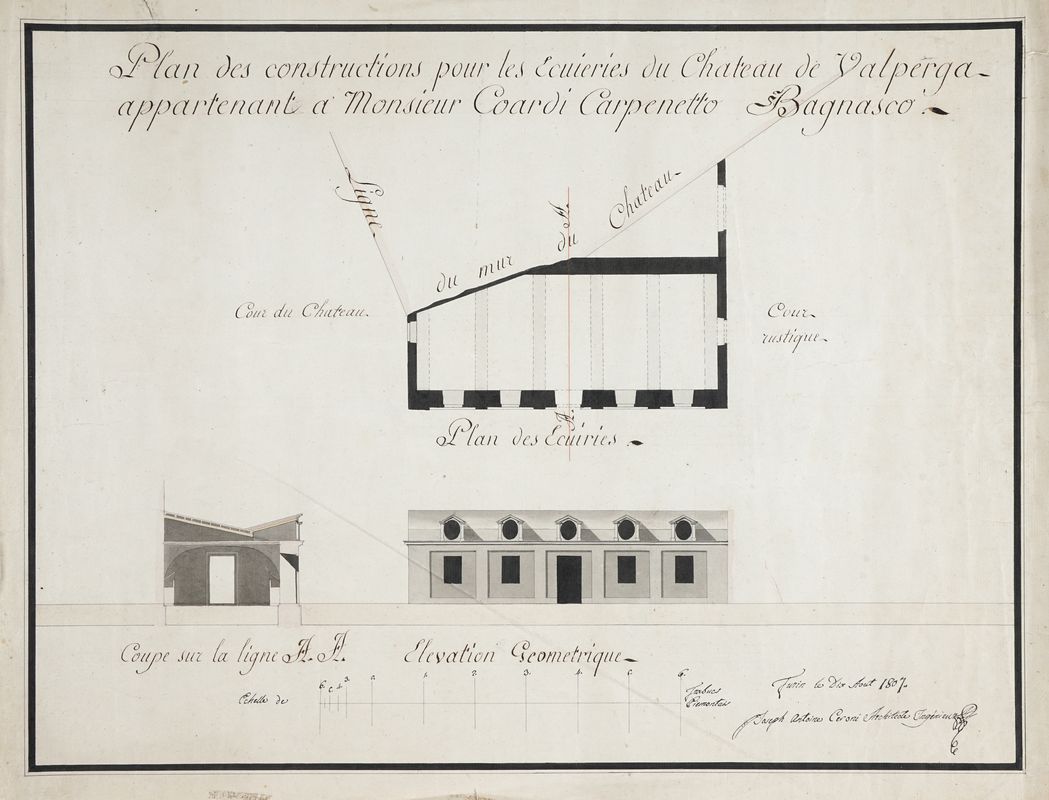 Plan des constructions pour les Ecuieries du Chateau de Valperga
appartenant a Monsieur Coardi Carpenetto Bagnasco.
Ligne
du mur
du
Chateau
A.
Cour du Chateau
Cour
rustique
A.
Plan des Ecuiries.
Coupe sur la ligne A. A.
Elevation Geometrique
Echelle de
6. 0. 1. 2. 3. 4. 5. 6.
Trabucs
Piemontais
Turin le Dix Aout 1807.
Joseph Antoine Ceroni Architecte Ingénieur